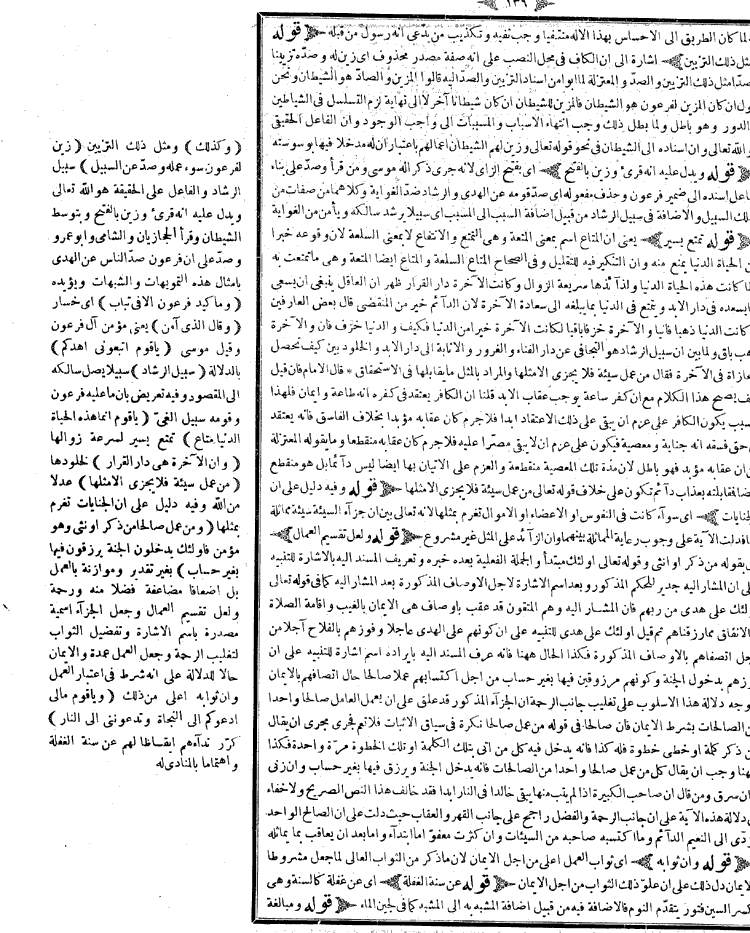 ١٣٩
لما كان الطريق الى الاحساس بهذا الاله منتفيا وجب نفيه وتكذيب من يدّعى انه رسول من قبله ﴿ قوله
مثل ذلك التزيين ﴾ اشارة الى ان الكاف فى محل النصب على انه صفة مصدر محذوف اى زين له وصدّه تزيينا
وصدّا مثل ذلك التزيين والصدّ والمعتزلة لما ابوا من اسناد التزيين والصدّ اليه قالوا المزين والصادّ هو الشيطان ونحن
نقول ان كان المزين لفرعون هو الشيطان فالمزين للشيطان ان كان شيطانا آخر لا الى نهاية لزم التسلسل فى الشياطين
والدور وهو باطل ولما بطل ذلك وجب انتهاء الاسباب والمسببات الى واجب الوجود وان الفاعل الحقيقى
هو الله تعالى وان اسناده الى الشيطان فى نحو قوله تعالى وزين لهم الشيطان اعمالهم باعتبار ان له مدخلا فيها بوسوسته
﴿ قوله ويدل عليه انه قرئ وزين بالفتح ﴾ اى بفتح الزاى لانه جرى ذكر الله موسى ومن قرأ وصدّ على بناء
الفاعل اسنده الى ضمير فرعون وحذف مفعوله اى صدّ قومه عن الهدى والرشاد ضدّ الغواية وكلاهما من صفات من
سلك السبيل والاضافة فى سبيل الرشاد من قبيل اضافة السبب الى المسبب اى سبيلا يرشد سالكه ويأمن من الغواية
﴿ قوله تمتع يسير ﴾ يعنى ان المتاع اسم بمعنى المتعة وهى التمتع والانتفاع لا بمعنى السلعة لان وقوعه خبرا
عن الحياة الدنيا يمنع منه وان التنكير فيه للتقليل وفى الصحاح المتاع السلعة و المتاع ايضا المتعة وهى ما تمتعت به
ولما كانت هذه الحياة الدنيا ولذآئذها سريعة الزوال وكانت الآخرة دار القرار ظهر ان العاقل ينبغى ان يسعى
لما يسعده فى دار الابد و تمتع فى الدنيا بما يبلغه الى سعادة الآخرة لان الدآئم خير من المنقضى قال بعض العارفين
لو كانت الدنيا ذهبا فانيا و الآخرة خزفا باقيا لكانت الآخرة خيرا من الدنيا فكيف و الدنيا خزف فان و الآخرة
ذهب باق ولما بين ان سبيل الرشاد هو التجافى عن دار الفناء والغرور و الانابة الى دار الابد و الخلود بين كيف تحصل
المجازاة فى الآخرة فقال من عمل سيئة فلا يجزى الا مثلها والمراد بالمثل ما يقابلها فى الاستحقاق * قال الامام فان قيل
كيف يصح هذا الكلام مع ان كفر ساعة يوجب عقاب الابد قلنا ان الكافر يعتقد فى كفره انه طاعة و ايمان فلهذا
السبب يكون الكافر على عزم ان يبقى على ذلك الاعتقاد ابدا فلا جرم كان عقابه مؤبدا بخلاف الفاسق فانه يعتقد
فى حق فسقه انه جناية و معصية فيكون على عزم ان لا يبقى مصرّا عليه فلا جرم كان عقابه منقطعا و ما يقوله المعتزلة
من ان عقابه مؤبد فهو باطل لان مدة تلك المعصية منقطعة و العزم على الاتيان بها ايضا ليس دآئما بل هو منقطع
ايضا فقابلته بعذاب دآئم تكون على خلاف قوله تعالى من عمل سيئة فلا يجزى الا مثلها ﴿ قوله وفيه دليل على ان
الجنايات ﴾ اى سوآء كانت فى النفوس او الاعضاء او الاموال تغرم بمثلها لانه تعالى بين ان جزآء السيئة سيئة مماثلة
لها فدلت الآية على وجوب رعاية المماثلة بينهما وان الزآئد على المثل غير مشروع ﴿ قوله ولعل تقسيم العمال ﴾
اى بقوله من ذكر او انثى وقوله تعالى اولئك مبتدأ و الجملة الفعلية بعده خبره و تعريف المسند اليه بالاشارة للتنبيه
على ان المشار اليه جدير للحكم المذكور وبعد اسم الاشارة لاجل الاوصاف المذكورة بعد المشار اليه كما فى قوله تعالى
اولئك على هدى من ربهم فان المشار اليه وهم المتقون قد عقب باوصاف هى الايمان بالغيب و اقامة الصلاة
و الانفاق مما رزقناهم ثم قيل اولئك على هدى للتنبيه على ان كونهم على الهدى عاجلا وفوزهم بالفلاح آجلا من
اجل اتصافهم بالاوصاف المذكورة فكذا الحال ههنا فانه عرف المسند اليه بايراده اسم اشارة للتنبيه على ان
فوزهم بدخول الجنة وكونهم مرزوقين فيها بغير حساب من اجل اكتسابهم عملا صالحا حال اتصافهم بالايمان
ووجه دلالة هذا الاسلوب على تغليب جانب الرحمة ان الجزآء المذكور قد علق على ان يعمل العامل صالحا واحدا
من الصالحات بشرط الايمان فان صالحا فى قوله من عمل صالحا نكرة فى سياق الاثبات فلا تعم فجرى مجرى ان يقال
من ذكر كلة او خطى خطوة فله كذا فانه يدخل فيه كل من اتى بتلك الكلمة او تلك الخطوة مرّة واحدة فكذا
ههنا وجب ان يقال كل من عمل صالحا واحدا من الصالحات فانه يدخل الجنة و يرزق فيها بغير حساب وان زنى
وان سرق ومن قال ان صاحب الكبيرة اذا لم يتب منها يبقى خالدا فى النار ابدا فقد خالف هذا النص الصريح ولا خفاء
فى دلالة هذه الآية على ان جانب الرحمة والفضل راجح على جانب القهر والعقاب حيث دلت على ان الصالح الواحد
يؤدّى الى النعيم الدآئم وما اكتسبه صاحبه من السيئات وان كثرت معفوّ اما ابتدآء و اما بعد ان يعاقب بما يماثله
﴿ قوله وان ثوابه ﴾ اى ثواب العمل اعلى من اجل الايمان لان ما ذكر من الثواب العالى لما جعل مشروطا
بالايمان دل ذلك على ان علوّ ذلك الثواب من اجل الايمان ﴿ قوله عن سنة الغفلة ﴾ اى عن غفلة كالسنة وهى
بكسر السين فتور يتقدّم النوم فالاضافة فيه من قبيل اضافة المشبه به الى المشبه كما فى لجين الماء ﴿ قوله ومبالغة
( وكذلك ) ومثل ذلك التزيين ( زين
لفرعون سوء عمله وصدّ عن السبيل ) سبيل
الرشاد و الفاعل على الحقيقة هو الله تعالى
ويدل عليه انه قرئ وزين بالفتح و بتوسط
الشيطان وقرأ الحجازيان والشامى وابو عمرو
وصدّ على ان فرعون صدّ الناس عن الهدى
بامثال هذه التمويهات و الشبهات ويؤيده
( وما كيد فرعون الا فى تباب ) اى خسار
( وقال الذى آمن ) يعنى مؤمن آل فرعون
وقيل موسى ( ياقوم اتبعونى اهدكم )
بالدلالة ( سبيل الرشاد ) سبيلا يصل سالكه
الى المقصود وفيه تعريض بان ما عليه فرعون
وقومه سبيل الغىّ ( ياقوم انما هذه الحياة
الدنيا متاع ) تمتع يسير لسرعة زوالها
( وان الآخرة هى دار القرار ) لخلودها
( من عمل سيئة فلا يجزى الا مثلها ) عدلا
من الله وفيه دليل على ان الجنايات تغرم
بمثلها ( ومن عمل صالحا من ذكر او انثى وهو
مؤمن فاولئك يدخلون الجنة يرزقون فيها
بغير حساب ) بغير تقدير وموازنة بالعمل
بل اضعافا مضاعفة فضلا منه ورحمة
ولعل تقسيم العمال وجعل الجزآء اسمية
مصدرة باسم الاشارة وتفضيل الثواب
لتغليب الرحمة وجعل العمل عمدة و الايمان
حالا للدلالة على انه شرط فى اعتبار العمل
وان ثوابه اعلى من ذلك ( وياقوم مالى
ادعوكم الى النجاة وتدعوننى الى النار )
كرّر ندآءهم ايقاظا لهم عن سنة الغفلة
واهتماما بالمنادى له